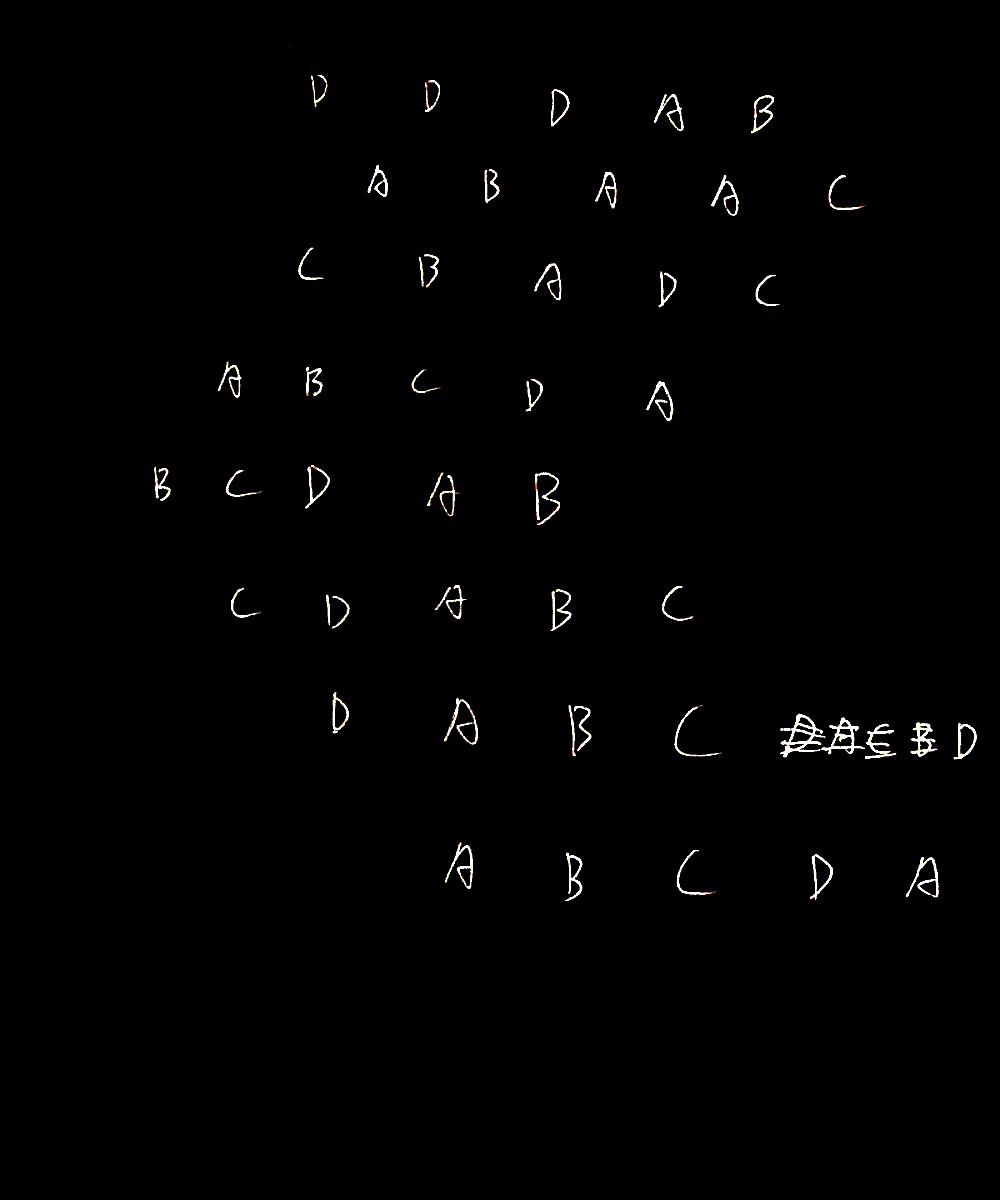 D D D A B
A B A A C
C B A D C
A B C D A
B C D A B
C D A B C
D A B C D
A B C D A